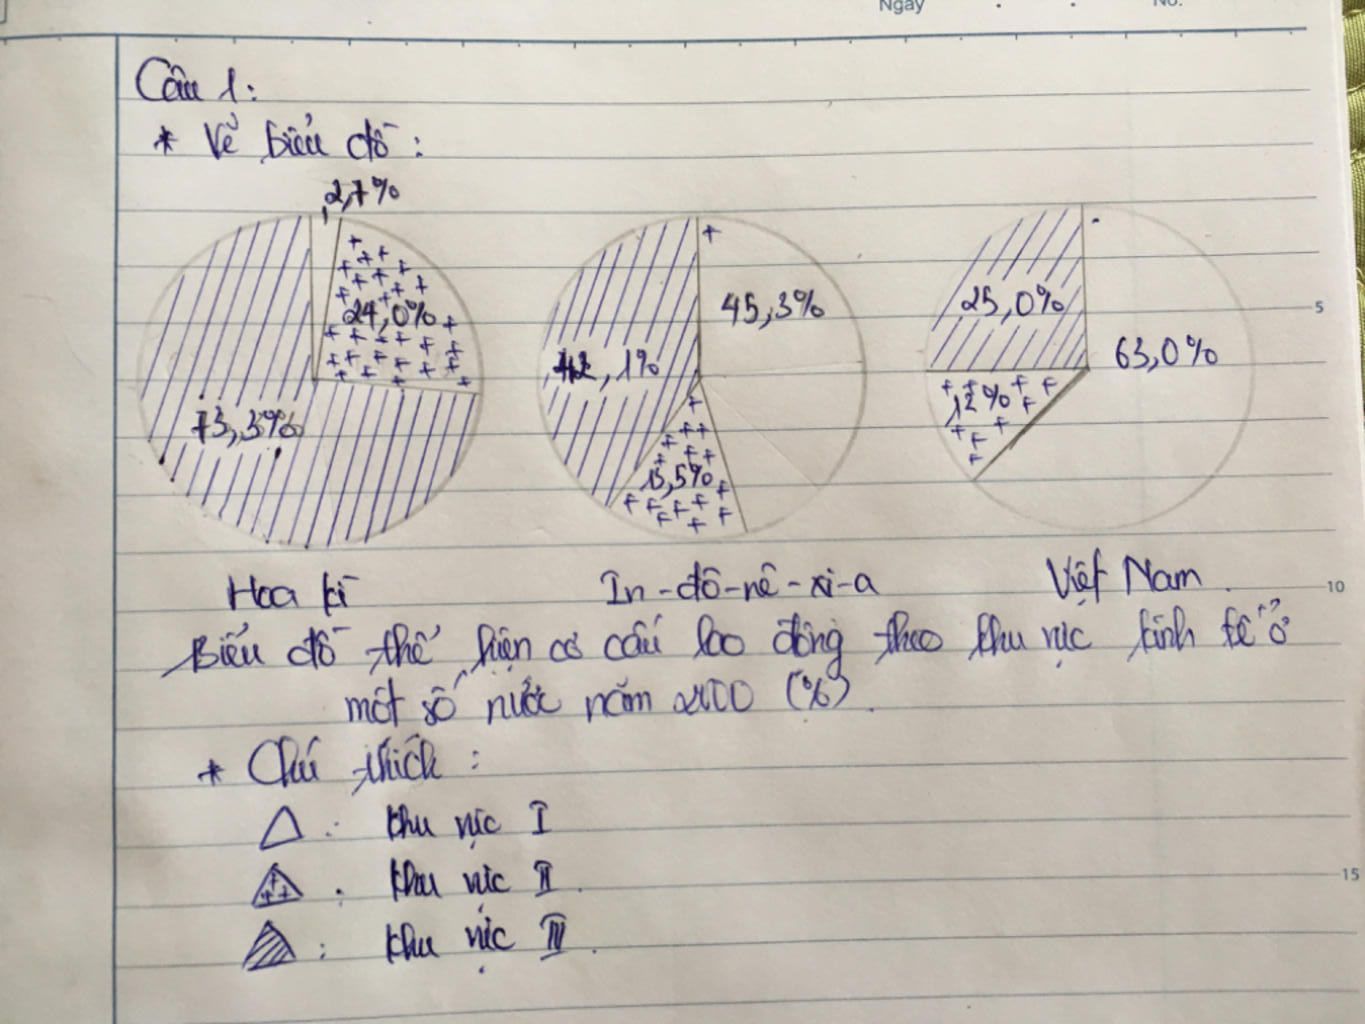 Ngày No.
Câu 1:
* Vẽ biểu đồ:
2,7%
24,0%
73,3%
45,3%
42,1%
13,5%
25,0%
63,0%
12%
5
Hoa kì In-đô-nê-xi-a Việt Nam
10
Biểu đồ thể hiện cơ cấu lao động theo khu vực kinh tế ở
một số nước năm 2000 (%).
* Chú thích:
: khu vực I
: khu vực II.
15
: khu vực III.